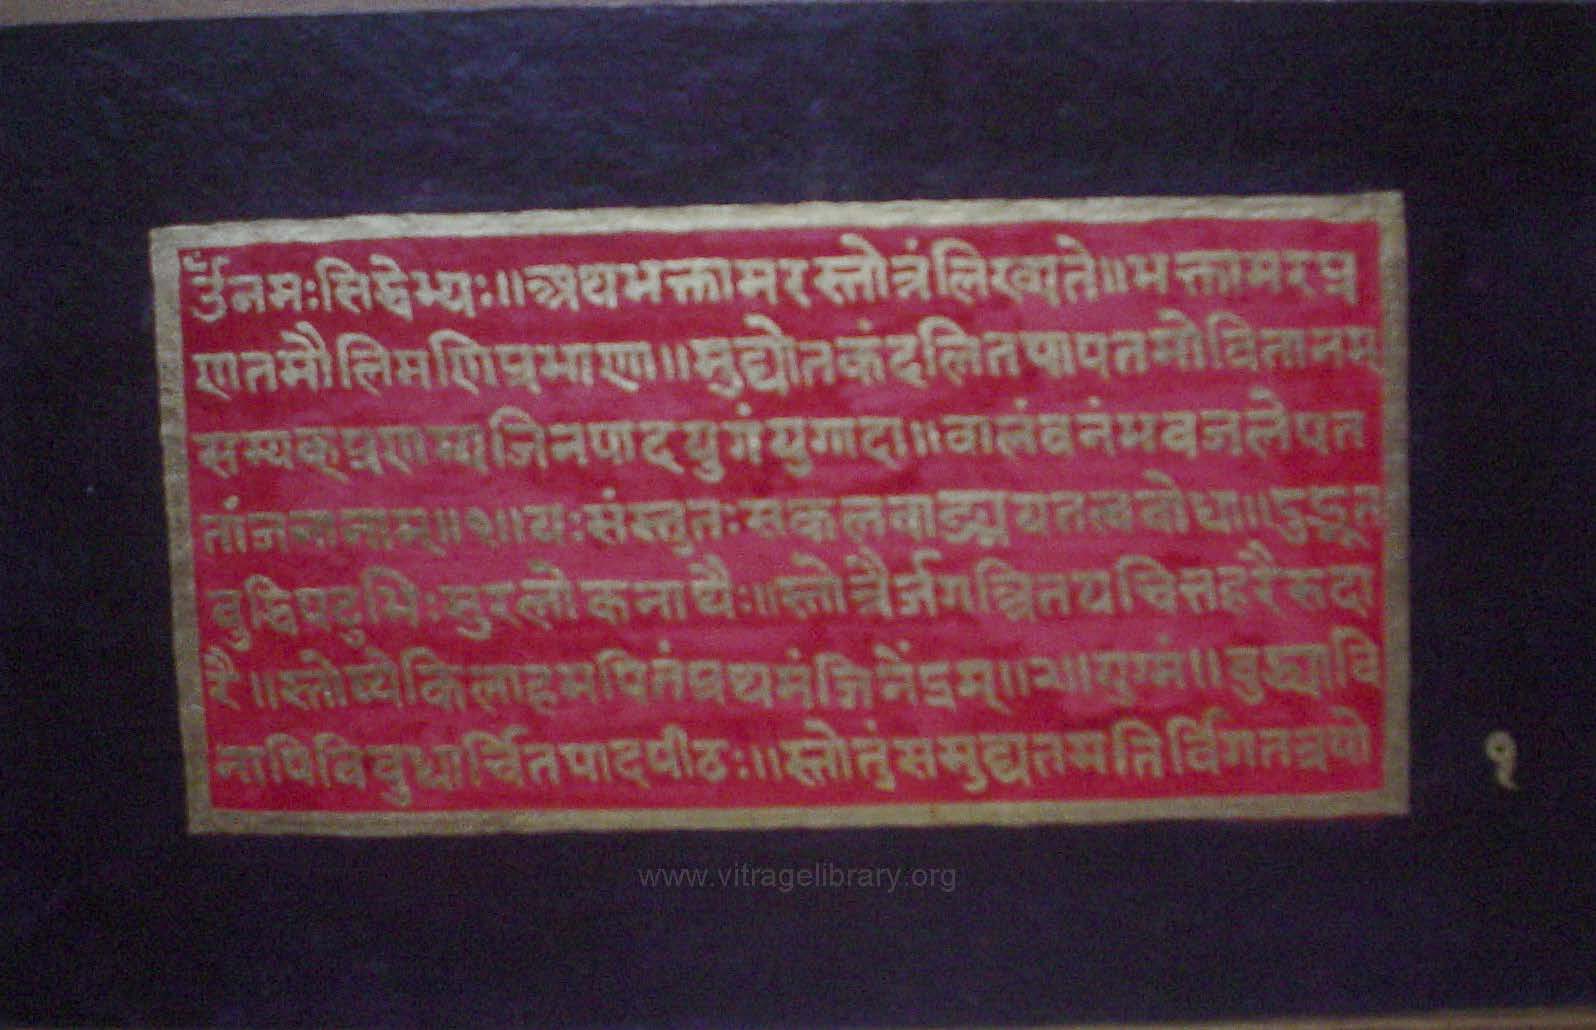 ॐनमःसिद्धेभ्यः॥अथभक्तामरस्तोत्रंलिख्यते॥भक्तामरप्र
णतमौलिमणिप्रभाणा॥मुद्योतकंदलितपापतमोवितानम्
सम्यक्प्रणम्यजिनपादयुगंयुगादा॥वालंवनंभवजलेपत
तांजनानाम्॥१॥यःसंस्तुतःसकलवाङ्मयतत्वबोधा॥दुद्भूत
बुद्धिपटुभिःसुरलोकनाथैः॥स्तोत्रैर्जगत्त्रितयचित्तहरैरुदा
रै॥स्तोष्येकिलाहमपितंप्रथमंजिनेंद्रम्॥२॥युग्मं॥बुद्ध्यावि
नापिविबुधार्चितपादपीठः॥स्तोतुंसमुद्यतमतिर्विगतत्रपो
१
www.vitragelibrary.org